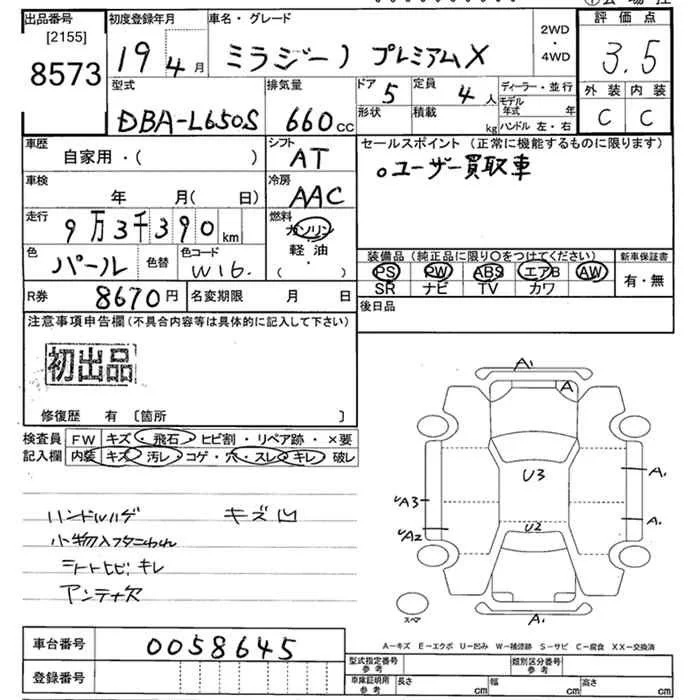 出品番号 初度登録年月 車名・グレード 2WD・4WD 評価点
[2155] 8573 19年4月 ミラジーノ プレミアムX 3.5
型式 排気量 ドア 5 定員 4人 ディーラー・並行 外装 内装
DBA-L650S 660cc 形状 積載 kg モデル年式 年 ハンドル 左・右 C C
車歴 自家用・( ) シフト AT セールスポイント (正常に機能するものに限ります)
車検 年 月(日) 冷房 AAC 。ユーザー買取車
走行 9万3千390km 燃料 ガソリン・軽油・( )
色 パール 色替 色コード W16. 装備品 (純正品に限り○をつけてください) 新車保証書
PS PW ABS エアB AW 有・無
SR ナビ TV カワ
R券 8670円 名変期限 月 日 後日品
注意事項申告欄(不具合内容等は具体的に記入して下さい)
初出品
修復歴 有 〔箇所 〕
検査員 FW キズ・飛石・ヒビ割・リペア跡・×要
記入欄 内装 キズ・汚レ・コゲ・穴・スレ・キレ・破レ
ハンドルハゲ キズ凹
小物入フタこわれ
シートヒビ キレ
アンテナ欠
A1 A U3 U2 UA3 UA2 A1 A1 A1
スペア
車台番号 0058645
登録番号
A―キズ E―エクボ U―凹み W―補修跡 S―サビ C―腐食 XX―交換済
型式指定番号 参考 類別区分番号 参考
車庫証明用 参考 長さ cm 幅 cm 高さ cm